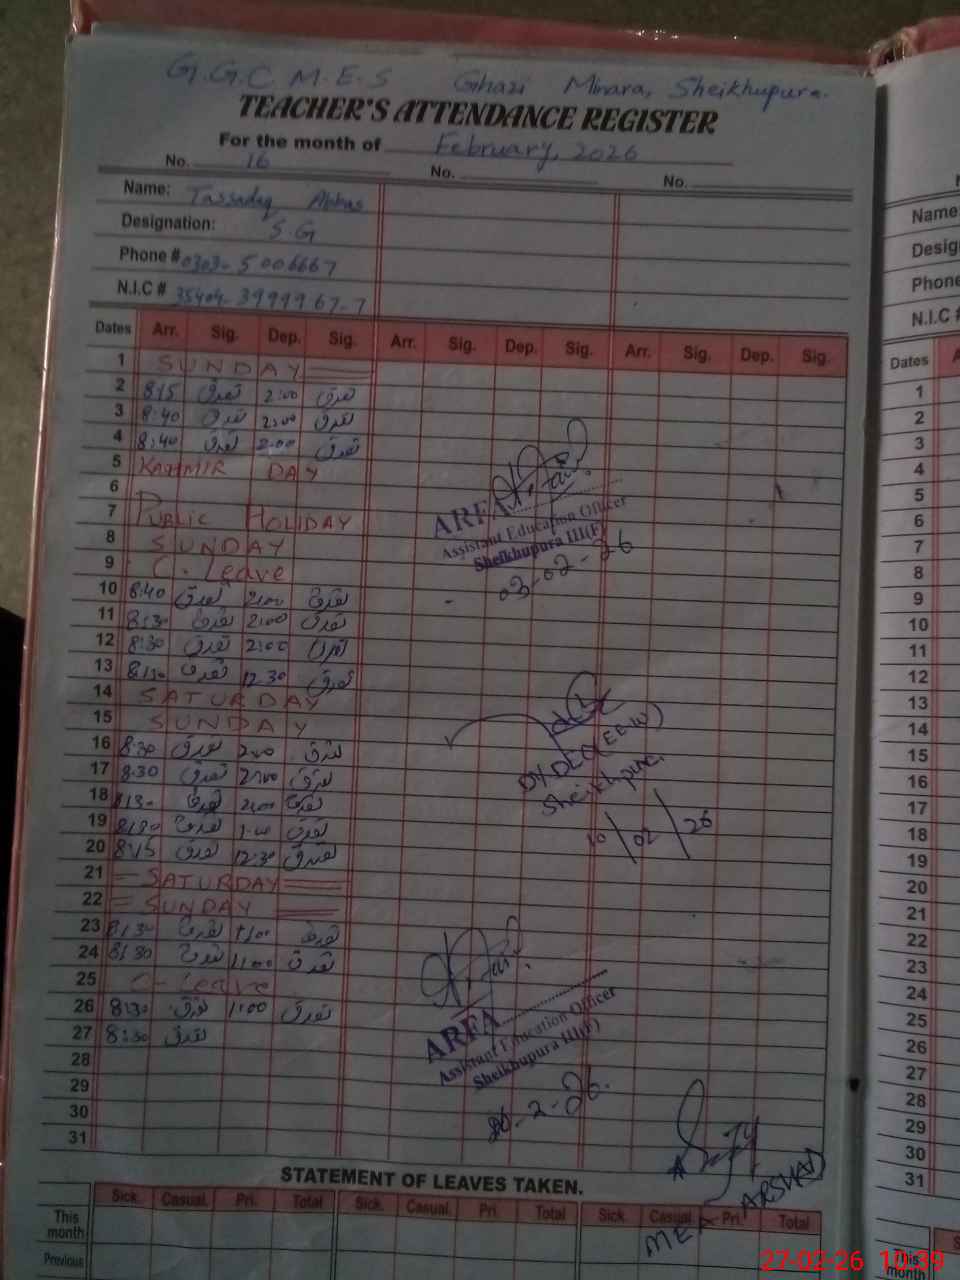 G.G.C M.E.S Ghazi Minara, Sheikhupura.
TEACHER'S ATTENDANCE REGISTER
For the month of February, 2026
No. 16 No. No.
Name: Tassadaq Abbas
Designation: S.G
Phone # 0303-5006667
N.I.C # 35404-3999967-7
Dates Arr. Sig. Dep. Sig. Arr. Sig. Dep. Sig. Arr. Sig. Dep. Sig.
1 SUNDAY
2 8:15 تصدق 2:00 تصدق
3 8:40 تصدق 2:00 تصدق
4 8:40 تصدق 2:00 تصدق
5 KASHMIR DAY
6
7 PUBLIC HOLIDAY
8 SUNDAY
9 C-Leave
10 8:40 تصدق 2:00 تصدق
11 8:30 تصدق 2:00 تصدق
12 8:30 تصدق 2:00 تصدق
13 8:30 تصدق 12:30 تصدق
14 SATURDAY
15 SUNDAY
16 8:30 تصدق 2:00 تصدق
17 8:30 تصدق 2:00 تصدق
18 8:30 تصدق 2:00 تصدق
19 تصدق 1:00 تصدق
20 8:15 تصدق 12:30 تصدق
21 SATURDAY
22 SUNDAY
23 8:30 تصدق 1:00 تصدق
24 8:30 تصدق 1:00 تصدق
25 C-Leave
26 8:30 تصدق 1:00 تصدق
27 8:30 تصدق
28
29
30
31
ARFA
Assistant Education Officer
Sheikhupura III(F)
03-02-26
DY DEO(EEW)
Sheikhpura
10/02/26
ARFA
Assistant Education Officer
Sheikhupura III(F)
26-2-26.
MEA ARSHAD
STATEMENT OF LEAVES TAKEN.
Sick. Casual. Pri. Total Sick. Casual. Pri. Total Sick. Casual. Pri. Total
This month
Previous
Name
Desig
Phone
N.I.C #
Dates
1
2
3
4
5
6
7
8
9
10
11
12
13
14
15
16
17
18
19
20
21
22
23
24
25
26
27
28
29
30
31
This month
Previous
27-02-26 10:39